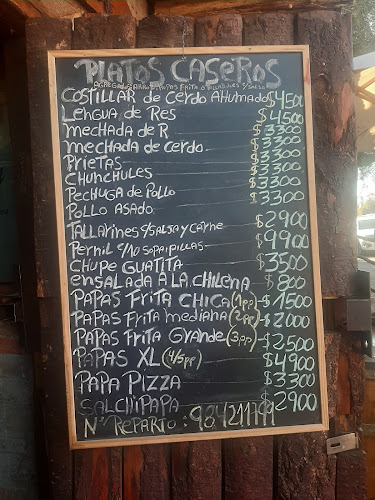 PLATOS CASEROS
COSTILLAR de CERDO AHUMADO $4500
LENGUA de RES $4500
MECHADA de R $3300
MECHADA de CERDO $3300
PRIETAS $3300
CHUNCHULES $3300
PECHUGA de POLLO $3300
POLLO ASADO
TALLARINES c/SALSA y CARNE $2900
PERNIL c/10 SOPAIPILLAS $9900
CHUPE GUATITA $3500
ENSALADA A LA CHILENA $800
PAPAS FRITA CHICA (1pp) $1500
PAPAS FRITA mediana (2pp) $2000
PAPAS FRITA GRANDE (3pp) $2500
PAPAS XL (4/5pp) $4900
PAPA PIZZA $3300
SALCHIPAPA $2900
N° REPARTO: